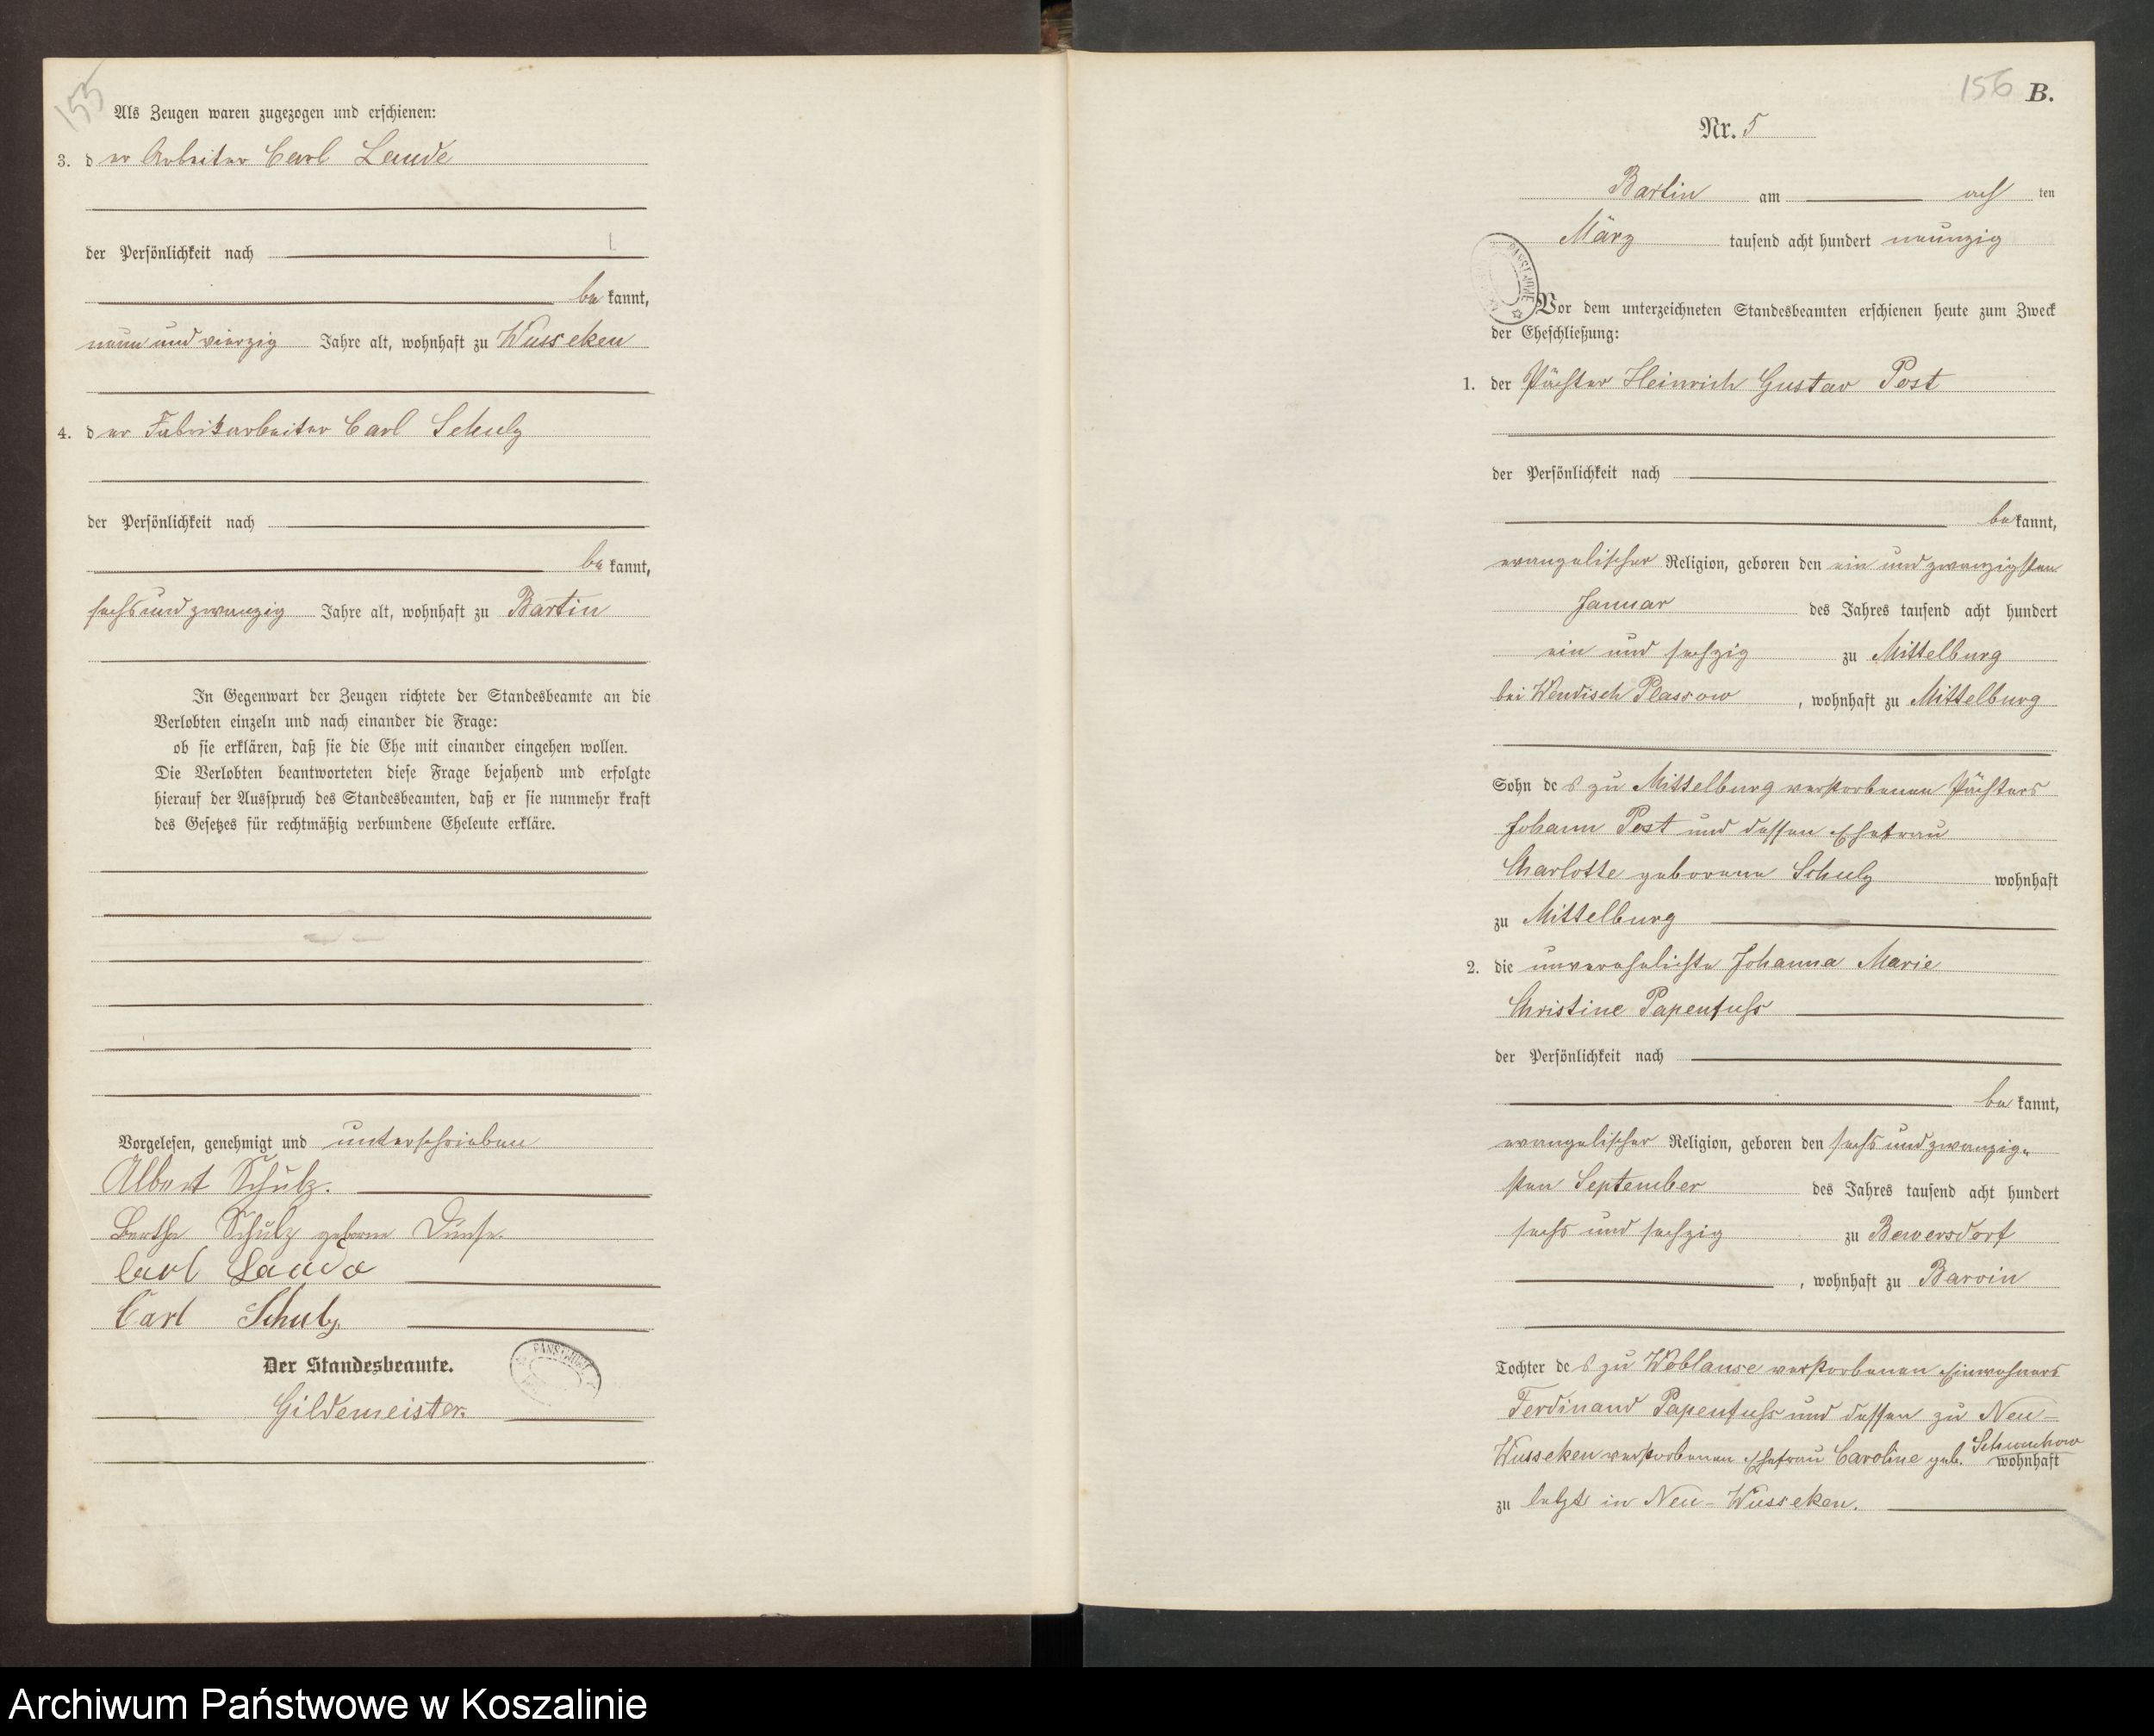 155
Als Zeugen waren zugezogen und erschienen:
3. der Arbeiter Carl Laude
der Persönlichkeit nach
bekannt,
neun und vierzig Jahre alt, wohnhaft zu Wusseken
4. der Fabrikarbeiter Carl Schulz
der Persönlichkeit nach
bekannt,
sechs und zwanzig Jahre alt, wohnhaft zu Bartin
In Gegenwart der Zeugen richtete der Standesbeamte an die
Verlobten einzeln und nach einander die Frage:
ob sie erklären, daß sie die Ehe mit einander eingehen wollen.
Die Verlobten beantworteten diese Frage bejahend und erfolgte
hierauf der Ausspruch des Standesbeamten, daß er sie nunmehr kraft
des Gesetzes für rechtmäßig verbundene Eheleute erkläre.
Vorgelesen, genehmigt und unterschrieben
Albert Schulz.
Bertha Schulz geborne
Carl Laude
Carl Schulz.
Der Standesbeamte.
Gildemeister.
156 B.
Nr. 5
Bartin am achten
März tausend acht hundert neunzig
Vor dem unterzeichneten Standesbeamten erschienen heute zum Zweck
der Eheschließung:
1. der Pächter Heinrich Gustav Post
der Persönlichkeit nach
bekannt,
evangelischer Religion, geboren den ein und zwanzigsten
Januar des Jahres tausend acht hundert
ein und sechzig zu Mittelburg
bei Wendisch Plassow, wohnhaft zu Mittelburg
Sohn des zu Mittelburg verstorbenen Pächters
Johann Post und dessen Ehefrau
Charlotte geborene Schulz wohnhaft
zu Mittelburg
2. die unverehelichte Johanna Marie
Christine Papenfuss
der Persönlichkeit nach
bekannt,
evangelischer Religion, geboren den sechs und zwanzig-
sten September des Jahres tausend acht hundert
sechs und sechzig zu Bewersdorf
, wohnhaft zu Barvin
Tochter des zu Woblanse verstorbenen Einwohners
Ferdinand Papenfuss und dessen zu Neu-
Wusseken verstorbenen Ehefrau Caroline geb. Schwuchow
wohnhaft
zu letzt in Neu-Wusseken.
Archiwum Państwowe w Koszalinie